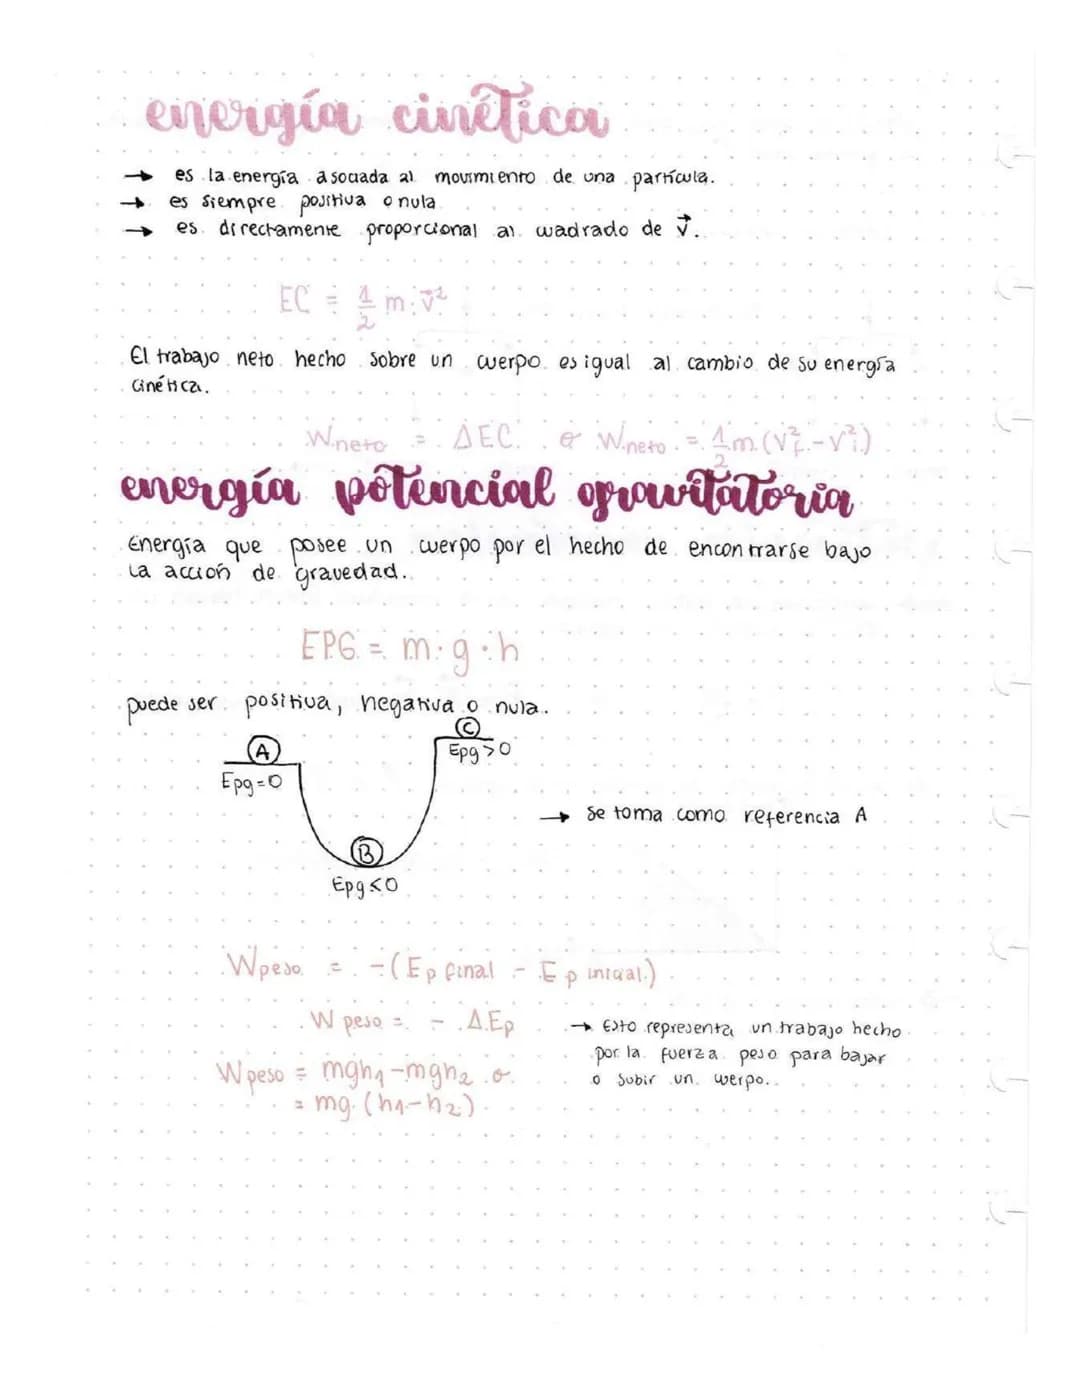 energía cinética
→ es la energía asociada al movimiento de una partícula.
→ es siempre positiva o nula
→ es directamente proporcional al cuadrado de v⃗.
EC = 1/2 m·v⃗²
El trabajo neto hecho sobre un cuerpo es igual al cambio de su energía
cinética.
Wneto = ΔEC. o Wneto = 1/2 m (v²f - v²i)
energía potencial gravitatoria
Energía que posee un cuerpo por el hecho de encontrarse bajo
la acción de gravedad.
EPG = m·g·h
puede ser positiva, negativa o nula.
C
A
Epg>0
Epg=0
→ se toma como referencia A
B
Epg<0
Wpeso = -(Ep final - Ep inicial)
W peso = - ΔEp
→ Esto representa un trabajo hecho
por la fuerza peso para bajar
o subir un cuerpo.
Wpeso = mgh1-mgh2 o
= mg (h1-h2)